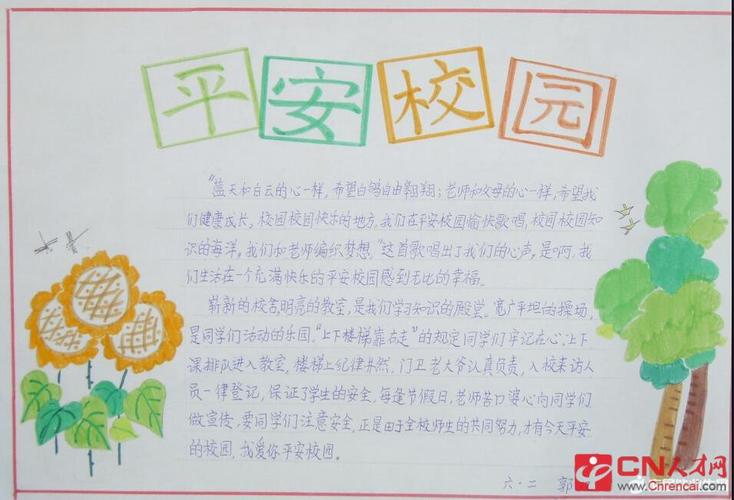 平安校园
"蓝天和白云的心一样,希望白鸽自由翱翔;老师和父母的心一样,希望我
们健康成长,校园校园快乐的地方,我们在平安校园愉快歌唱,校园校园知
识的海洋。我们和老师编织梦想。"这首歌唱出了我们的心声,是啊,我
们生活在一个充满快乐的平安校园感到无比的幸福。
崭新的校舍,明亮的教室,是我们学习知识的殿堂。宽广平坦的操场,
是同学们活动的乐园。"上下楼梯靠右走"的规定同学们牢记在心,上下
课排队进入教室,楼梯上纪律井然,门卫老大爷认真负责,入校来访人
员一律登记,保证了学生的安全,每逢节假日,老师苦口婆心向同学们
做宣传,要同学们注意安全,正是由于全校师生的共同努力,才有今天平安
的校园,我爱你平安校园。
六·二 郭
CN人才网
www.Chrencai.com